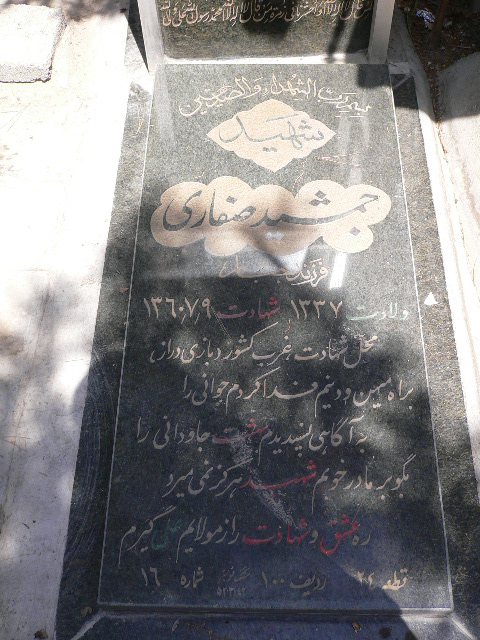 بسم رب الشهداء والصدیقین
شهید
جمشید صفاری
فرزند
ولادت ۱۳۳۷ شهادت ۱۳۶۰/۷/۹
محل شهادت غرب کشور دبازی دراز
براه میهن و دینم فدا کردم جوانی را
به آگاهی پسندیدم بهشت جاودانی را
بگو بر مادر خوبم شهید هرگز نمی میرد
ره عشق و شهادت را ز مولایم علی گیرم
قطعه ۲۴ ردیف ۱۰۰ شماره ۱۶